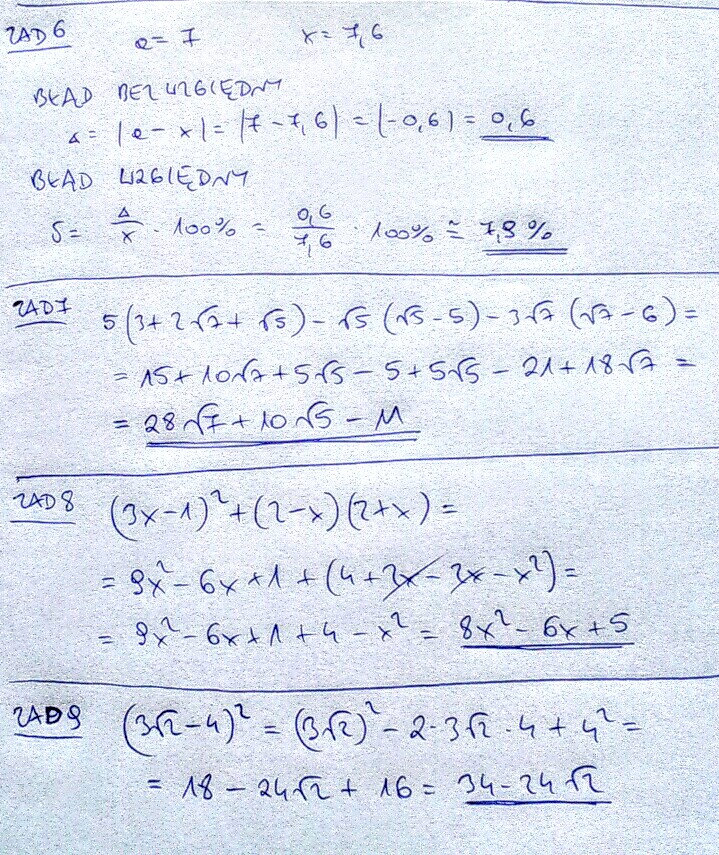 ZAD 6 a = 7 x = 7,6
BŁĄD BEZWZGLĘDNY
Δ = |a - x| = |7 - 7,6| = |-0,6| = 0,6
BŁĄD WZGLĘDNY
δ = Δ/x · 100% = 0,6/7,6 · 100% ≅ 7,9%
ZAD 7 5(3 + 2√7 + √5) - √5(√5 - 5) - 3√7(√7 - 6) =
= 15 + 10√7 + 5√5 - 5 + 5√5 - 21 + 18√7 =
= 28√7 + 10√5 - 11
ZAD 8 (3x - 1)² + (2 - x)(2 + x) =
= 9x² - 6x + 1 + (4 + 2x - 2x - x²) =
= 9x² - 6x + 1 + 4 - x² = 8x² - 6x + 5
ZAD 9 (3√2 - 4)² = (3√2)² - 2·3√2·4 + 4² =
= 18 - 24√2 + 16 = 34 - 24√2